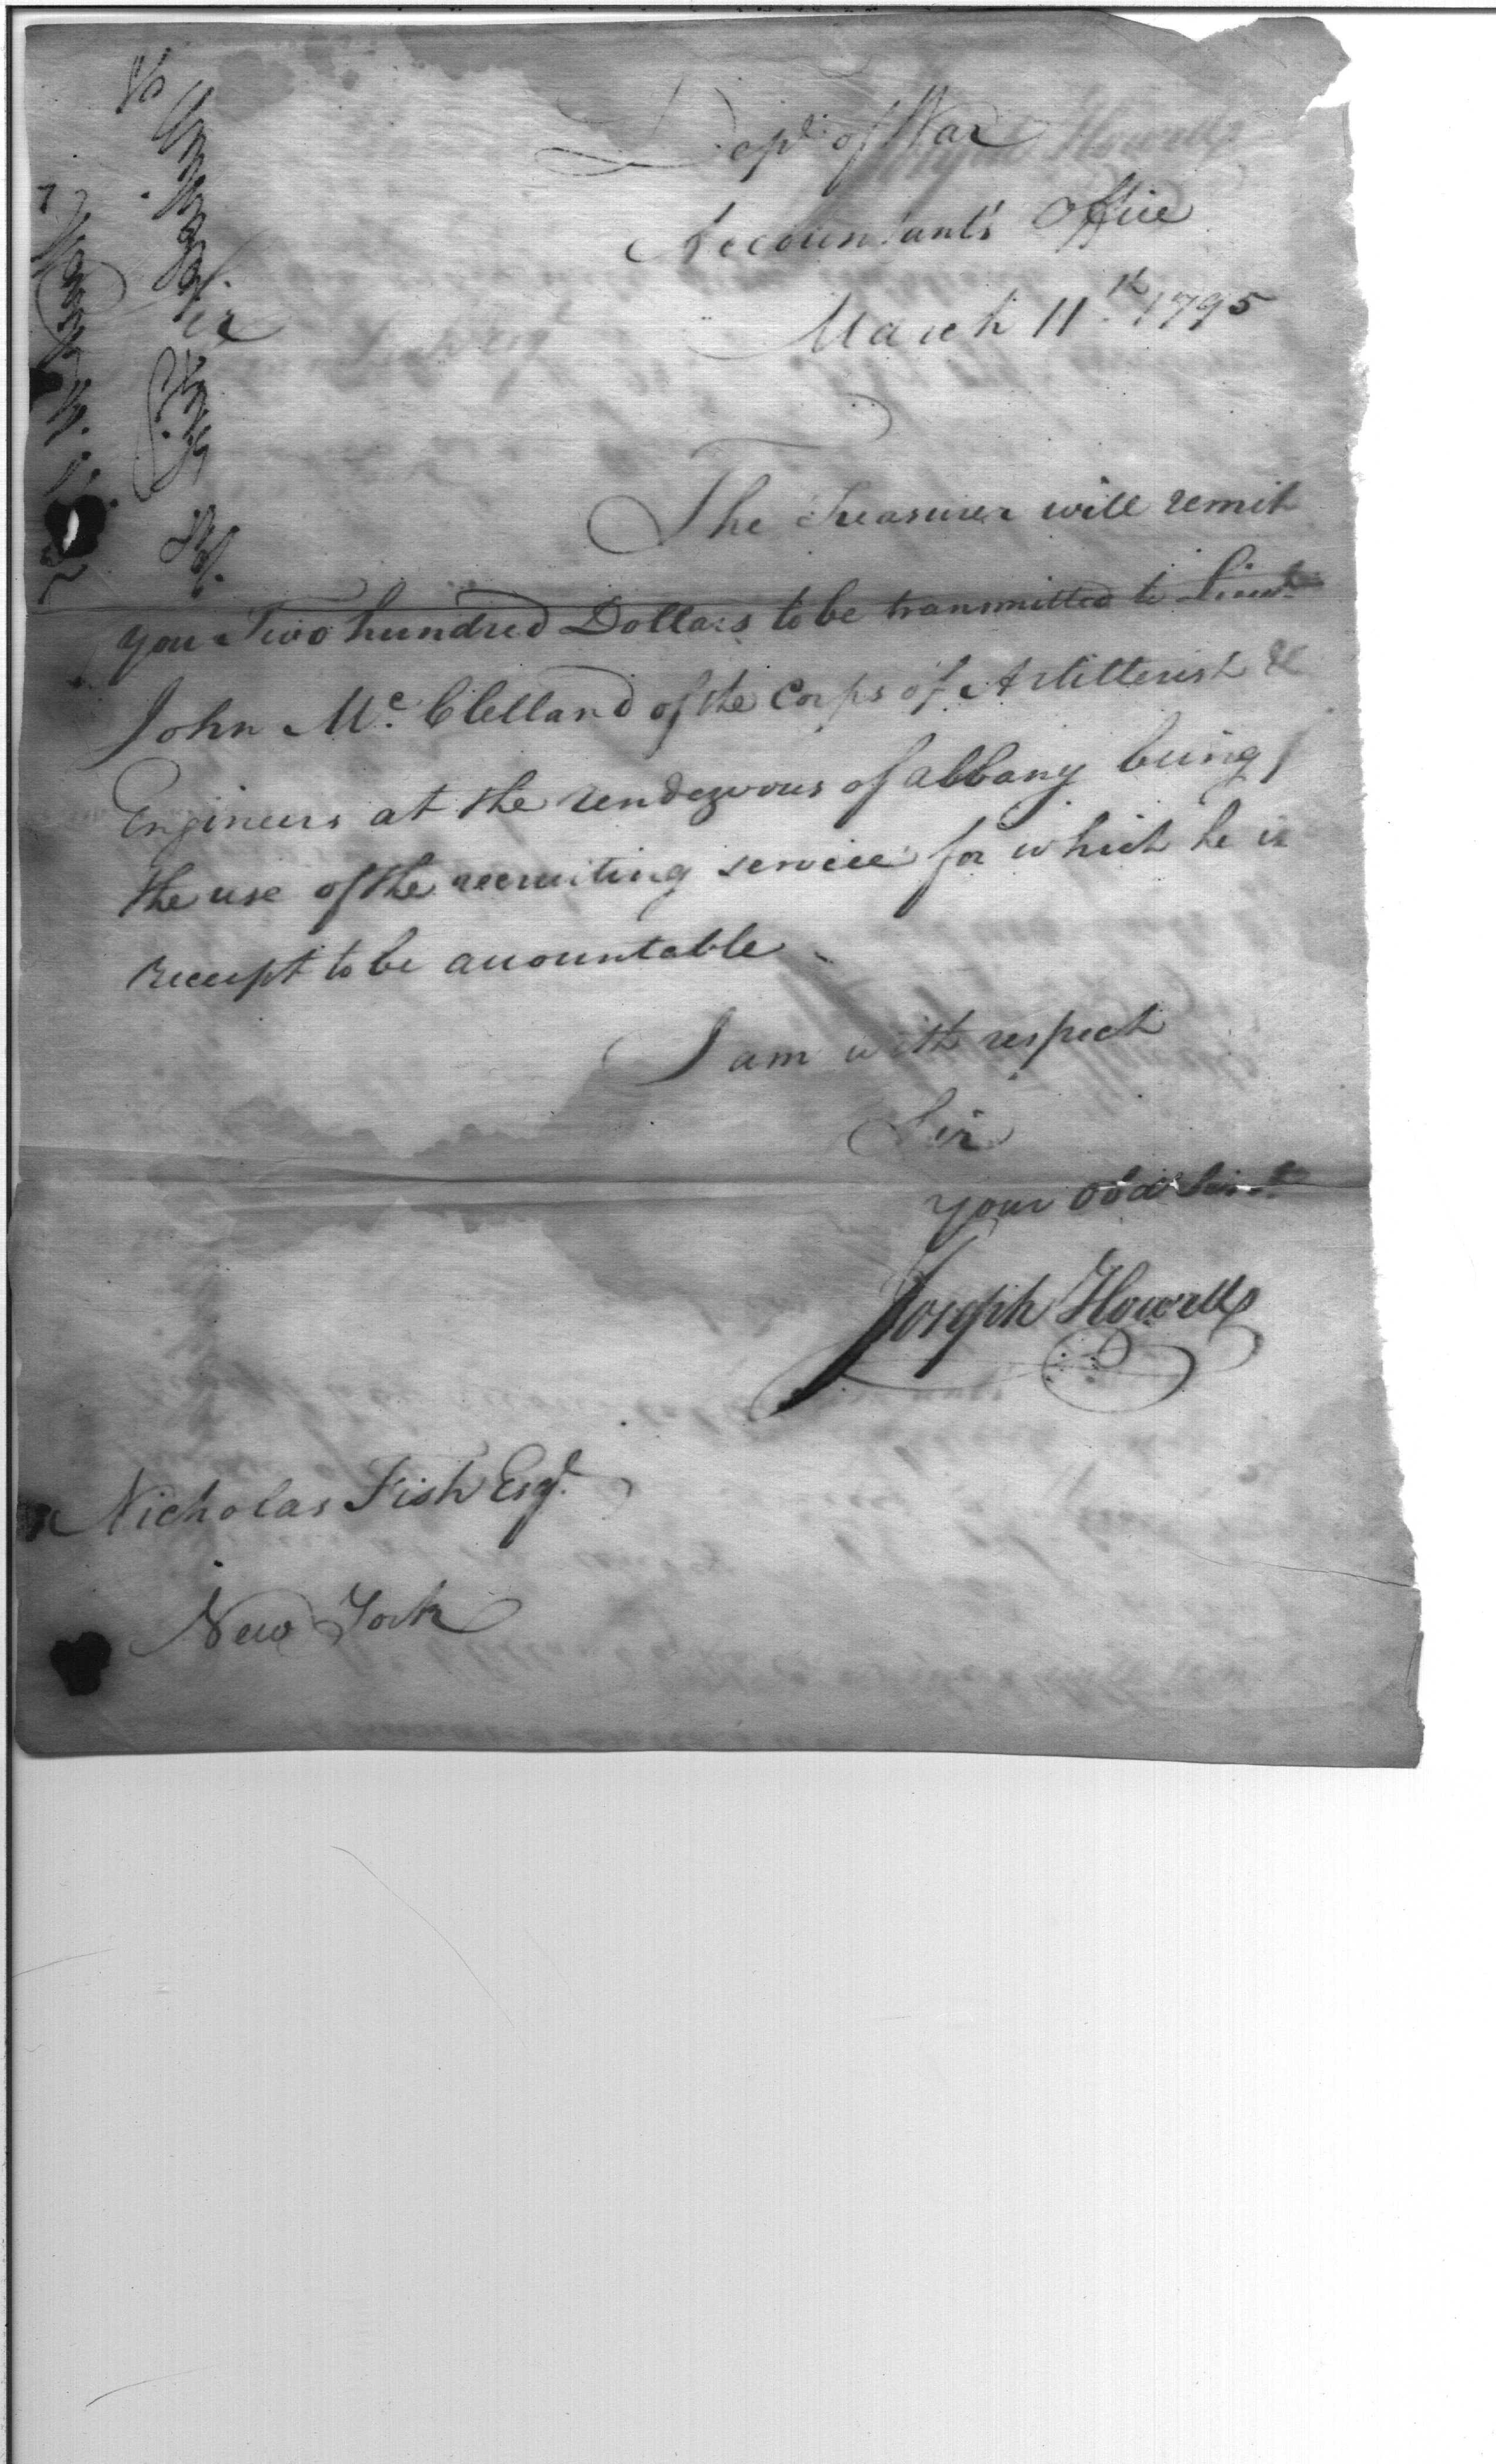 Dept. of War
Accountant's Office
March 11th. 1795
The Treasurer will remit
you Two hundred Dollars to be transmitted to Lieut.
John Mc. Clelland of the Corps of Artillerist &
Engineers at the rendezvous of albany being f
the use of the recruiting service for which he is
receipt to be accountable
I am with respect
Sir
your obd Servt.
Joseph Howell
Nicholas Fish Esqr.
New York